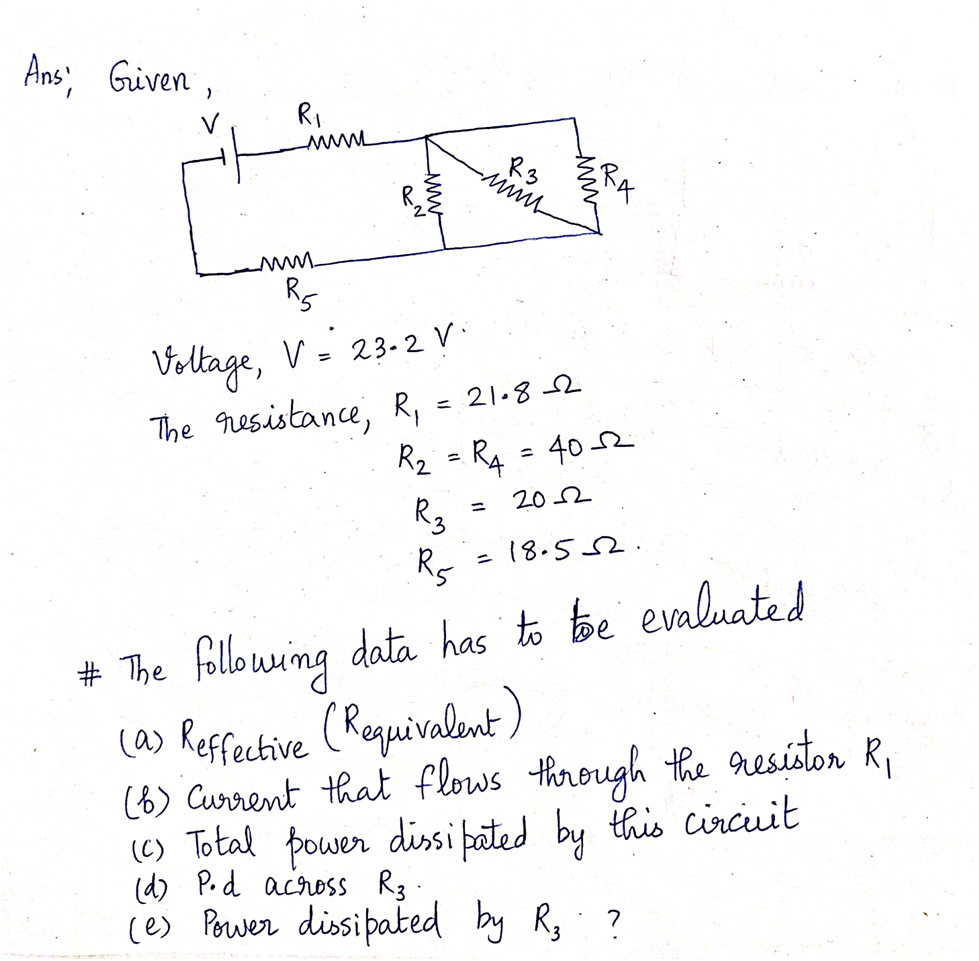 Ans; Given,
V
R1
R2
R3
R4
R5
Voltage, V = 23.2 V.
The resistance, R1 = 21.8 Ω
R2 = R4 = 40 Ω
R3 = 20 Ω
R5 = 18.5 Ω.
# The following data has to be evaluated
(a) Reffective (Requivalent)
(b) Current that flows through the resistor R1
(c) Total power dissipated by this circuit
(d) P.d across R3.
(e) Power dissipated by R3 ?